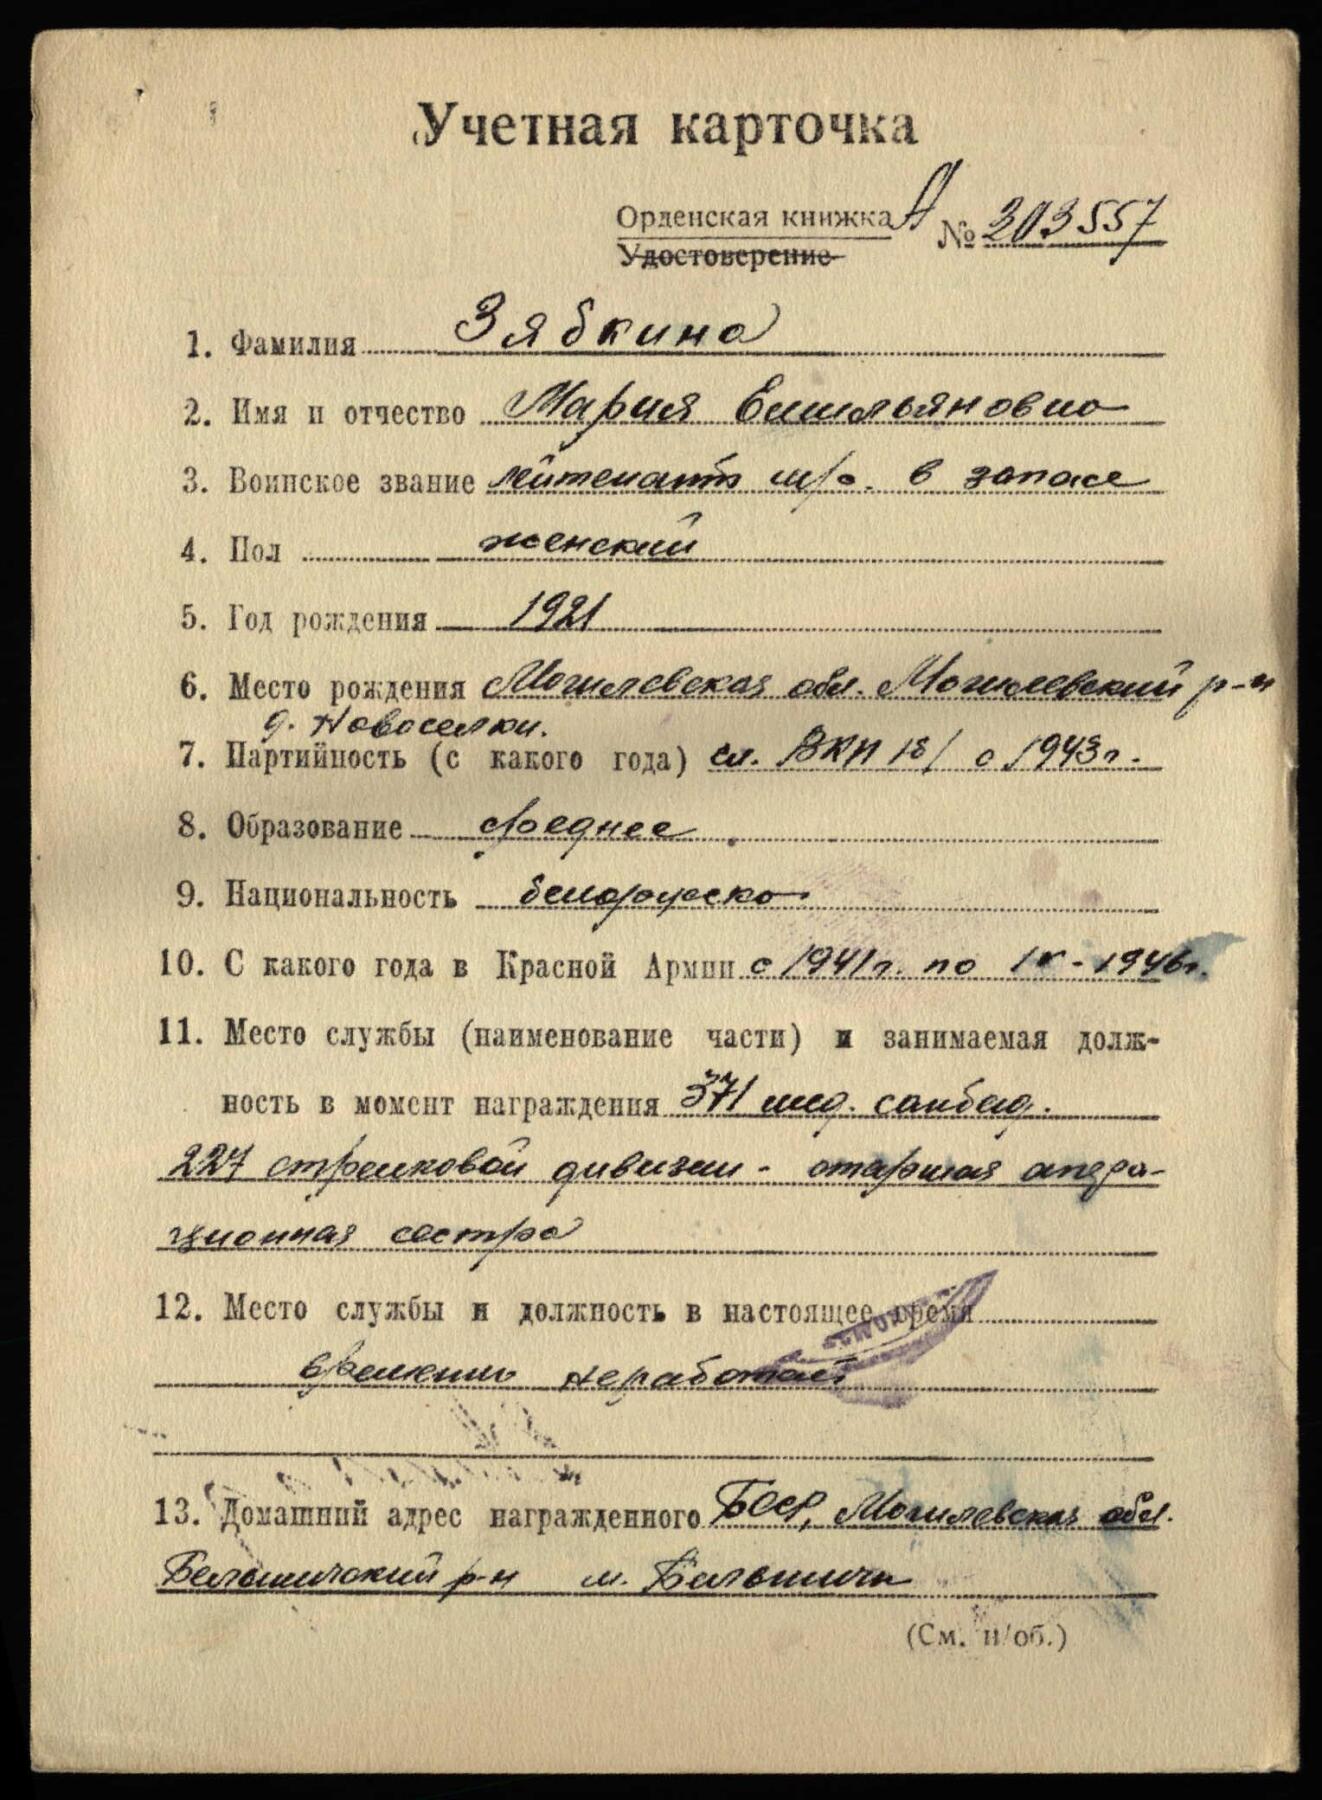 Учетная карточка
Орденская книжка А № 303557
Удостоверение
1. Фамилия Зябкина
2. Имя и отчество Мария Емильяновна
3. Воинское звание лейтенант м/с. в запасе
4. Пол женский
5. Год рождения 1921
6. Место рождения Могилевская обл. Могилевский р-н
д. Новоселки.
7. Партийность (с какого года) чл. ВКП /б/ с 1943 г.
8. Образование среднее
9. Национальность белорусска
10. С какого года в Красной Армии с 1941 г. по 1946 г.
11. Место службы (наименование части) и занимаемая долж-
ность в момент награждения 371 мед. санбат.
227 стрелковой дивизии - старшая опера-
ционная сестра
12. Место службы и должность в настоящее время
времен. неработает
13. Домашний адрес награжденного БССР, Могилевская обл.
Белыничский р-н м. Белыничи
(См. н/об.)